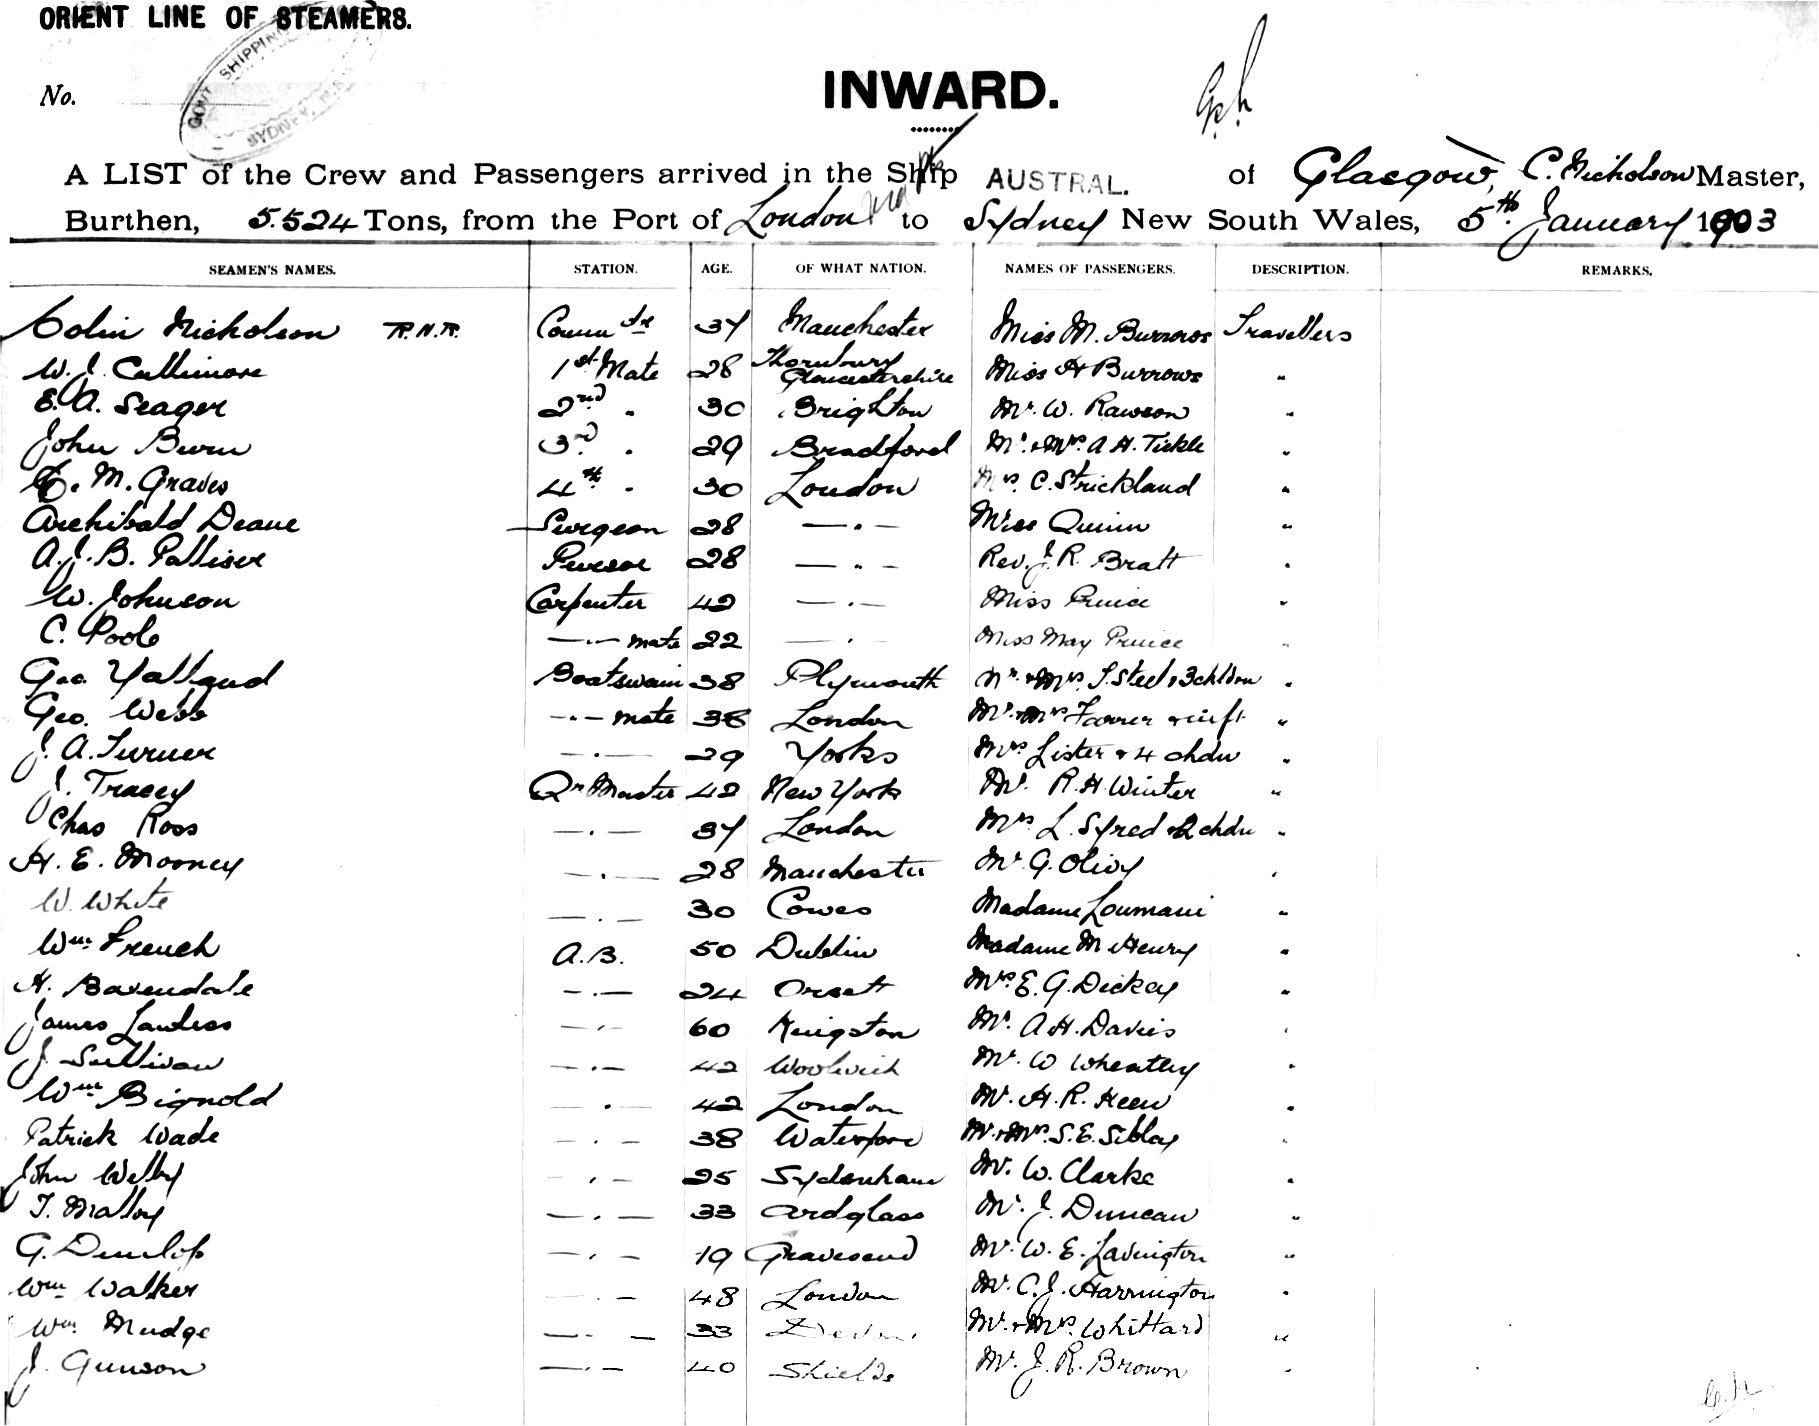 ORIENT LINE OF STEAMERS.
GOVT SHIPPING
SYDNEY, N.S.W.
No.
INWARD.
A LIST of the Crew and Passengers arrived in the Ship AUSTRAL. of Glasgow, C. Nicholson Master,
Burthen, 5.524 Tons, from the Port of London to Sydney New South Wales, 5th January 1903
SEAMEN'S NAMES. STATION. AGE. OF WHAT NATION. NAMES OF PASSENGERS. DESCRIPTION. REMARKS.
Colin Nicholson R.N.R. Commdr 37 Manchester Miss M. Burrows Travellers
W. J. Cullimore 1st Mate 28 Thornbury Gloucestershire Miss H Burrows "
E. A. Seager 2nd " 30 Brighton Mr. W. Rawson "
John Burn 3rd " 29 Bradford Mr. & Mrs. A. H. Tickle "
M. Graves 4th " 30 London Mrs. C. Strickland "
Archibald Deane Surgeon 28 — " — Miss Quinn "
A. J. B. Palliser Purser 28 — " — Rev. J. R. Bratt "
W. Johnson Carpenter 42 — " — Miss Prince "
C. Poole — " — mate 22 — " — Miss May Prince "
Geo Yalland Boatswain 38 Plymouth Mr. & Mrs. Steel & 3 chldrn "
Geo. Webb — " — mate 38 London Mr. & Mrs Farrer & inft "
J. A. Turner — " — 29 Yorks Mrs Lister & 4 chdn "
J. Tracey Qr Master 42 New York Mr. R. H. Winter "
Chas Ross — " — 37 London Mrs L. Syred & 2 chdn "
H. E. Mooney — " — 28 Manchester Mr G. Olivy "
W. White — " — 30 Cowes Madame Loumani "
Wm. French A.B. 50 Dublin Madame M Henry "
H. Bavendale — " — 24 Orsett Mrs E. G. Dickey "
James Landess — " — 60 Kingston Mr. A. H. Davies "
J. Sullivan — " — 42 Woolwich Mr. W Wheatley "
Wm Bignold — " — 42 London Mr. H. R. Keen "
Patrick Wade — " — 38 Waterford Mr. & Mrs. S. E. Sibley "
John Welby — " — 25 Sydenham Mr. W. Clarke "
T. Malloy — " — 33 Ardglass Mr. J. Duncan "
G. Dunlop — " — 19 Gravesend Mr. W. E. Lavington "
Wm Walker — " — 48 London Mr. C. J. Harrington "
Wm. Mudge — " — 33 Devon Mr. & Mrs. Whittard "
J. Gunson — " — 40 Shields Mr. J. R. Brown "